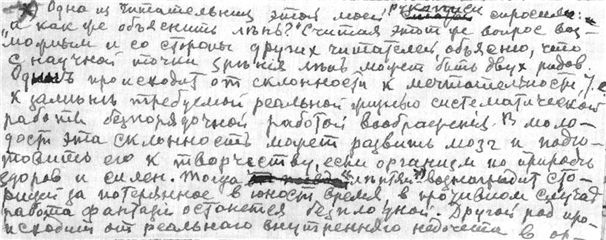 *) Одна из читательниц этой моей рукописи спросила:
"и как же объяснить лѣнь?" Считая этот же вопрос воз-
можным и со стороны других читателей объясню, что
с научной точки зрѣнiя лѣнь может быть двух родов.
Одна происходит от склонности к мечтательности, т.е
к замѣнѣ требуемой реальной жизнью систематической
работы безпорядочной работой воображенiя. В моло-
дости эта склонность может развить мозг и подго-
товить его к творчеству, если организм по природѣ
здоров и силен. Тогда "лѣнтяй" вознаградит сто-
рицей за потерянное в юности время, в противном случаѣ
работа фантазiи останется безплодной. Другой род про-
исходит от реального внутренняго недочета в ор-